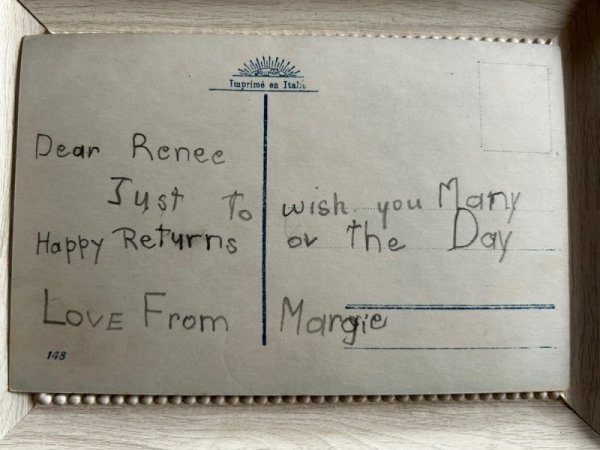 Imprimé en Italie
Dear Renee
Just To wish you Many
Happy Returns ov The Day
Love From Margie
148